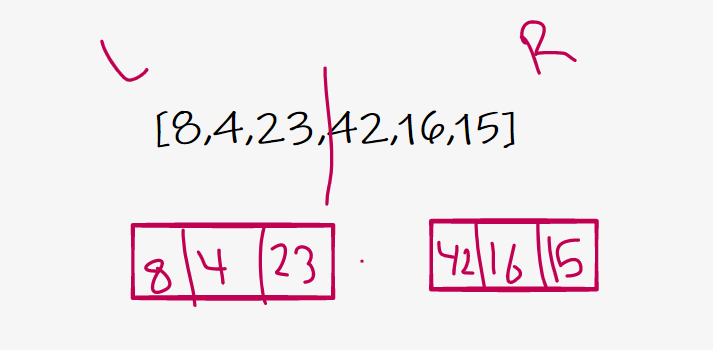 L R
[8,4,23,42,16,15]
8 4 23 42 16 15